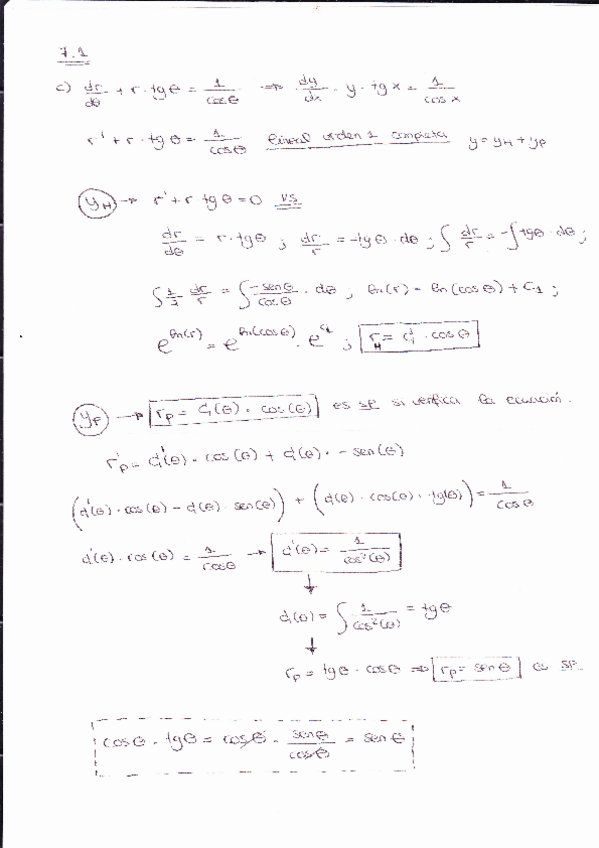 7.1
c) dr/dθ + r · tgθ = 1/cosθ ⇒ dy/dx · y · tgx = 1/cosx
r' + r · tgθ = 1/cosθ lineal orden 1 completa y = yH + yP
yH → r' + r tgθ = 0 VS
dr/dθ = r · tgθ ; dr/r = -tgθ · dθ ; ∫ dr/r = -∫ tgθ · dθ ;
∫ dr/r = ∫ -senθ/cosθ · dθ ; ln(r) = ln(cosθ) + C1 ;
e^ln(r) = e^ln(cosθ) · e^C1 ; rH = C1 · cosθ
yP → rP = C1(θ) · cos(θ) es SP si verifica la ecuación.
r'P = C1'(θ) · cos(θ) + C1(θ) · -sen(θ)
(C1'(θ) · cos(θ) - C1(θ) · sen(θ)) + (C1(θ) · cos(θ) · tg(θ)) = 1/cosθ
C1'(θ) · cos(θ) = 1/cosθ → C1'(θ) = 1/cos²(θ)
↓
C1(θ) = ∫ 1/cos²(θ) = tgθ
↓
rP = tgθ · cosθ ⇒ rP = senθ es SP
cosθ · tgθ = cosθ · senθ/cosθ = senθ